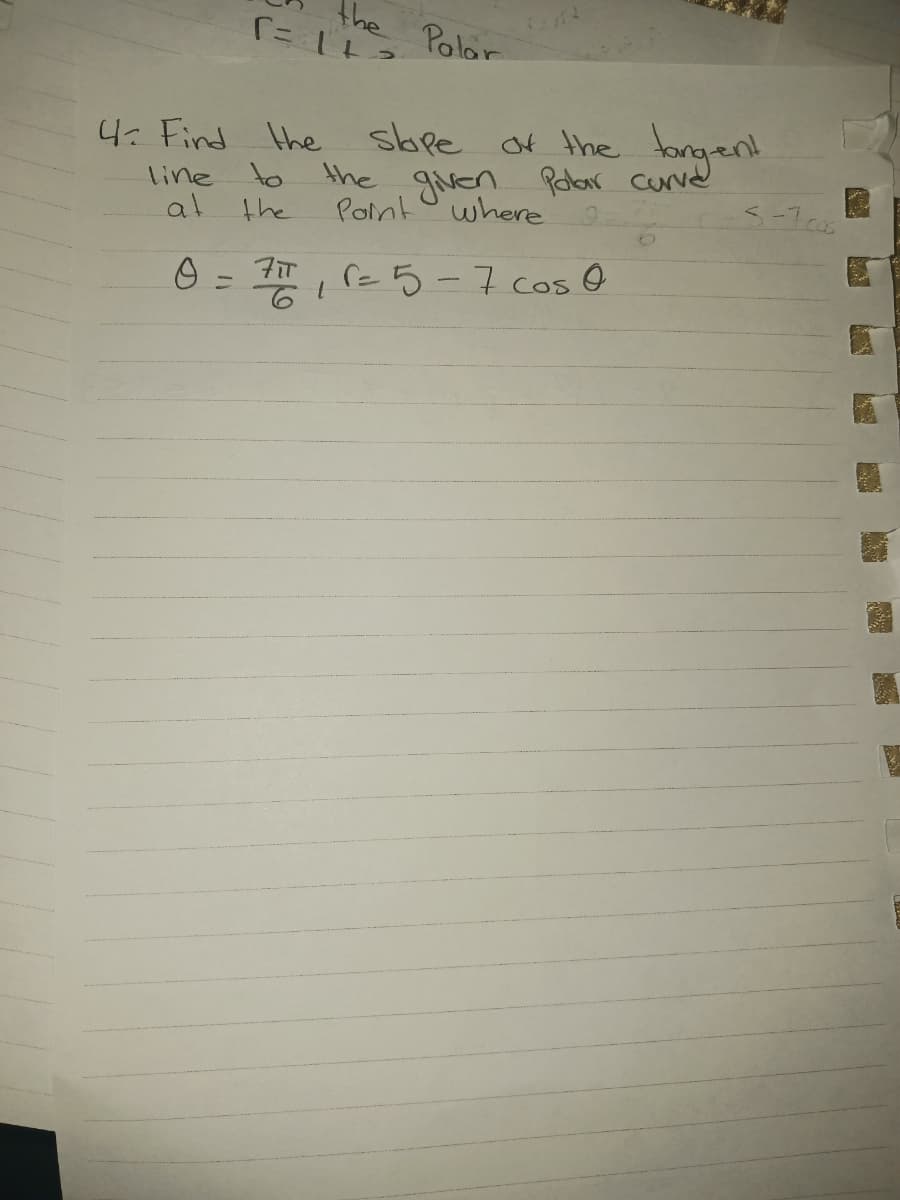 the
r = 1 + 2 Polar
4: Find the slope of the tangent
line to the given Polar curve
at the Point where
5-7 cos
θ = 7π/6, r = 5 - 7 cos θ